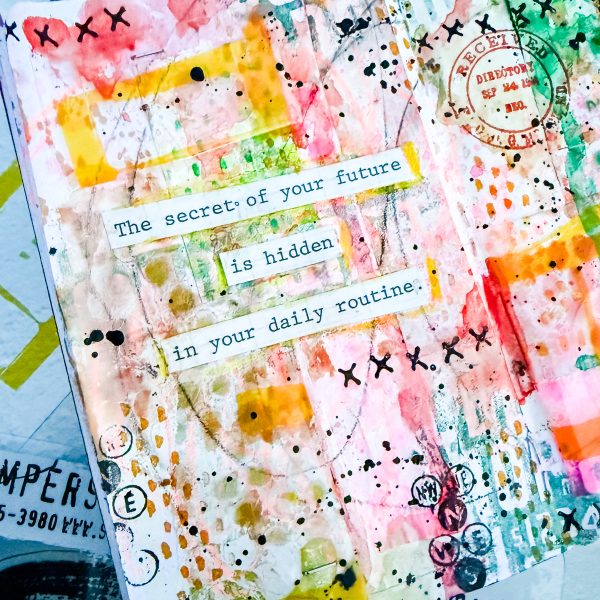 RECEIVED
DIRECTORY
SEP 24
The secret of your future
is hidden
in your daily routine.
E
MPERS
5-3980